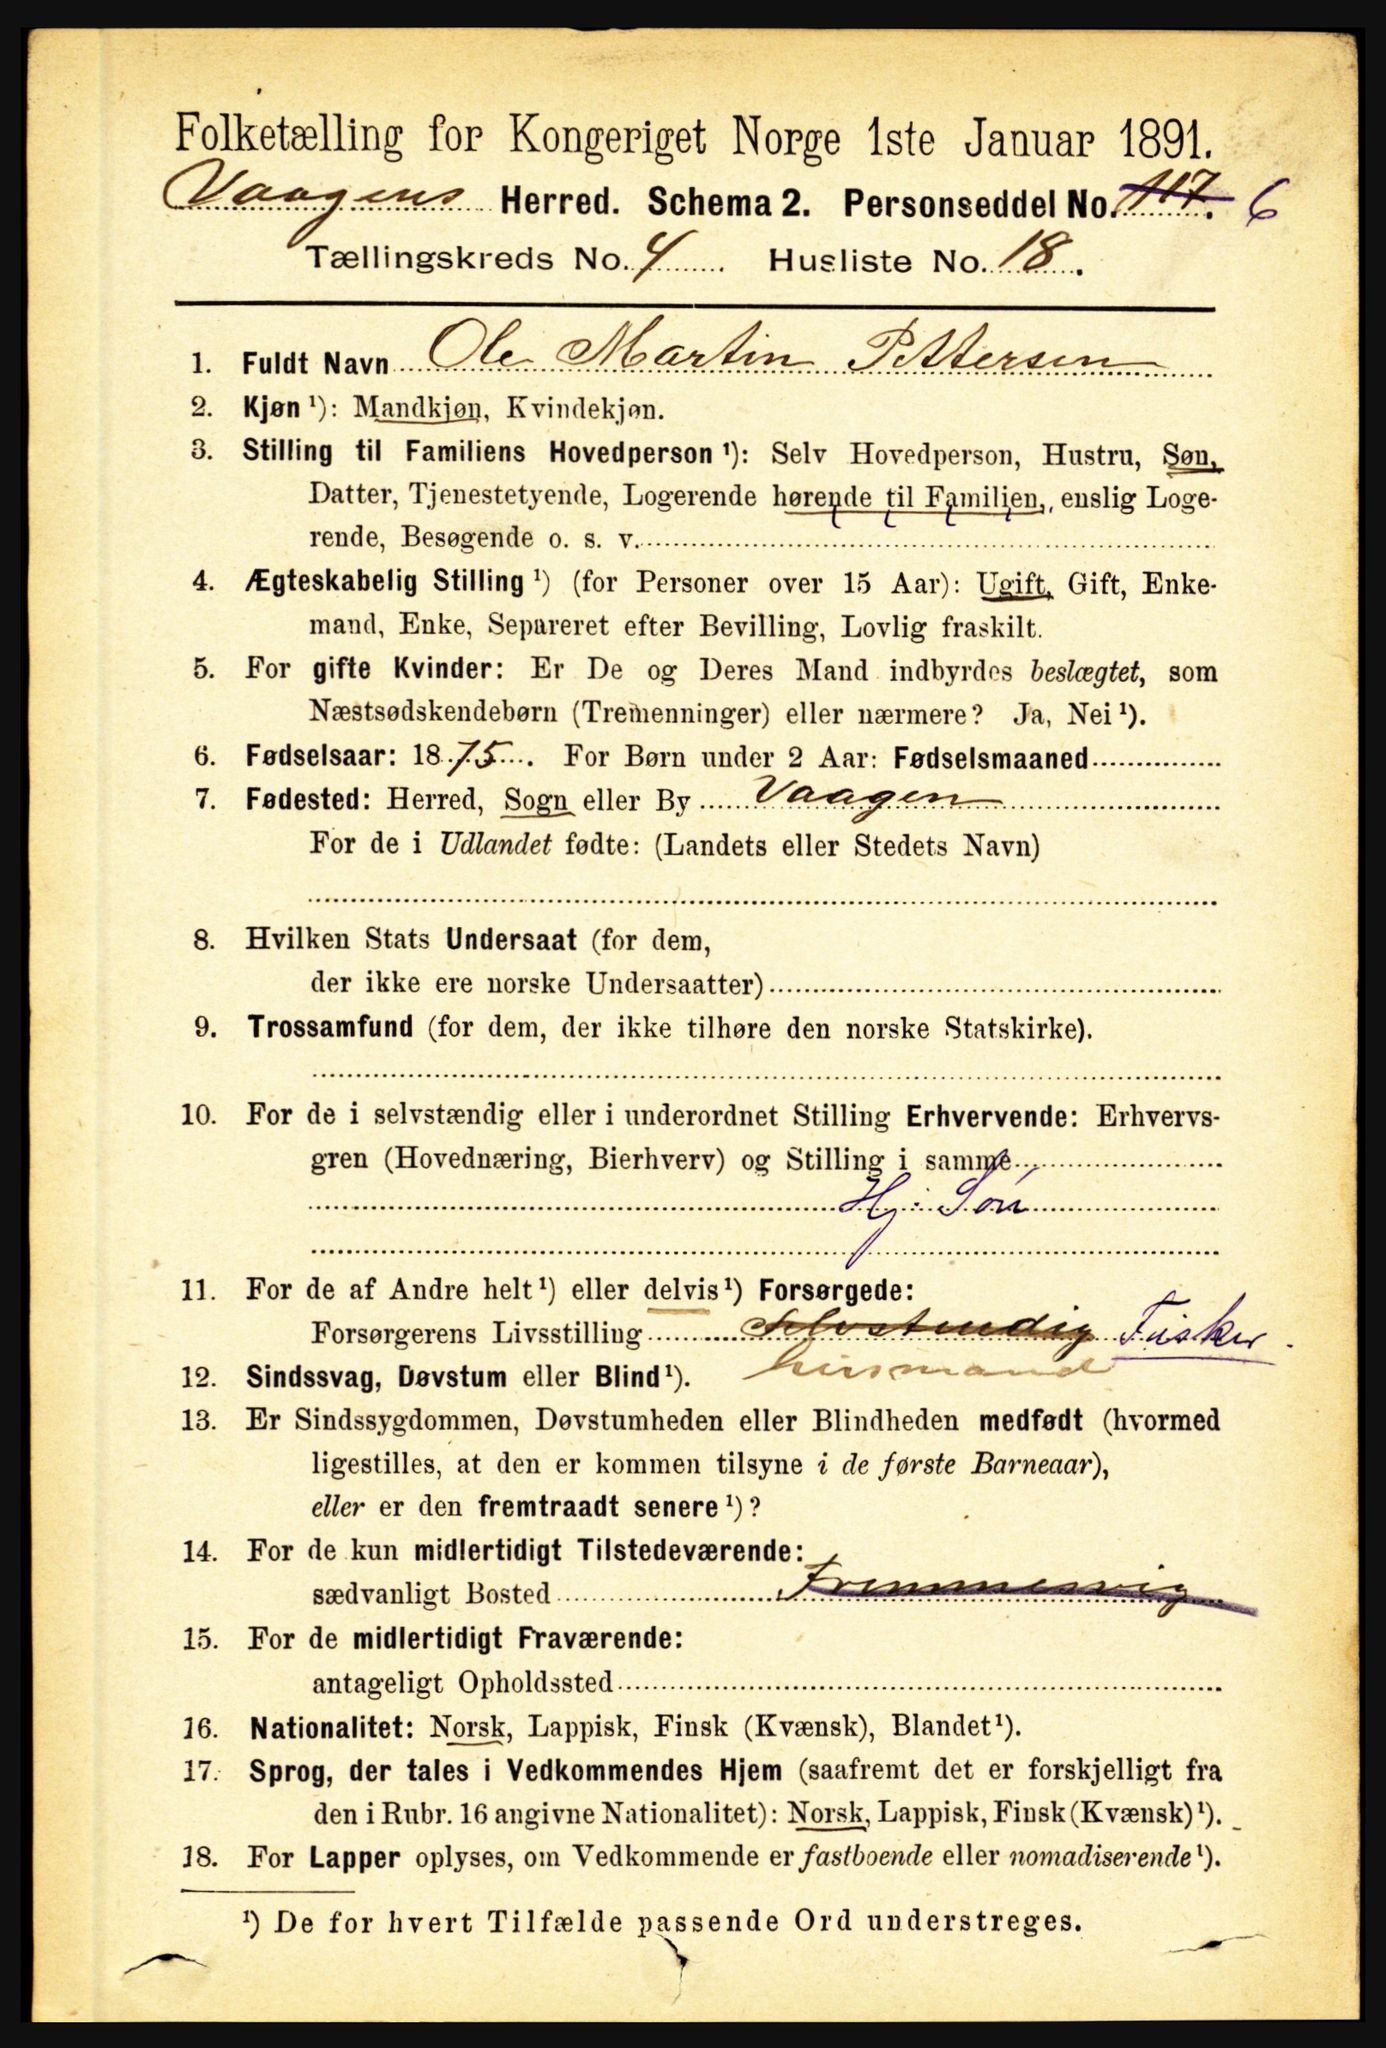 Folketælling for Kongeriget Norge 1ste Januar 1891.
Vaagens Herred. Schema 2. Personseddel No. 117. 6
Tællingskreds No. 4 Husliste No. 18.
1. Fuldt Navn Ole Martin Pettersen
2. Kjøn ¹): Mandkjøn, Kvindekjøn.
3. Stilling til Familiens Hovedperson ¹): Selv Hovedperson, Hustru, Søn,
Datter, Tjenestetyende, Logerende hørende til Familien, enslig Loge-
rende, Besøgende o. s. v.
4. Ægteskabelig Stilling ¹) (for Personer over 15 Aar): Ugift, Gift, Enke-
mand, Enke, Separeret efter Bevilling, Lovlig fraskilt.
5. For gifte Kvinder: Er De og Deres Mand indbyrdes beslægtet, som
Næstsødskendebørn (Tremenninger) eller nærmere? Ja, Nei ¹).
6. Fødselsaar: 1875. For Børn under 2 Aar: Fødselsmaaned
7. Fødested: Herred, Sogn eller By Vaagen
For de i Udlandet fødte: (Landets eller Stedets Navn)
8. Hvilken Stats Undersaat (for dem,
der ikke ere norske Undersaatter)
9. Trossamfund (for dem, der ikke tilhøre den norske Statskirke).
10. For de i selvstændig eller i underordnet Stilling Erhvervende: Erhvervs-
gren (Hovednæring, Bierhverv) og Stilling i samme
Hj. Søn
11. For de af Andre helt ¹) eller delvis ¹) Forsørgede:
Forsørgerens Livsstilling Selvstendig Fisker
12. Sindssvag, Døvstum eller Blind ¹). husmand
13. Er Sindssygdommen, Døvstumheden eller Blindheden medfødt (hvormed
ligestilles, at den er kommen tilsyne i de første Barneaar),
eller er den fremtraadt senere ¹)?
14. For de kun midlertidigt Tilstedeværende:
sædvanligt Bosted
15. For de midlertidigt Fraværende:
antageligt Opholdssted
16. Nationalitet: Norsk, Lappisk, Finsk (Kvænsk), Blandet ¹).
17. Sprog, der tales i Vedkommendes Hjem (saafremt det er forskjelligt fra
den i Rubr. 16 angivne Nationalitet): Norsk, Lappisk, Finsk (Kvænsk) ¹).
18. For Lapper oplyses, om Vedkommende er fastboende eller nomadiserende ¹).
¹) De for hvert Tilfælde passende Ord understreges.